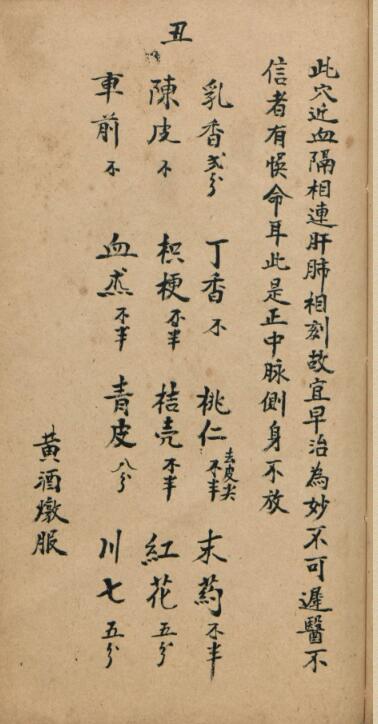 丑
此穴近血隔相連肝肺相刻故宜早治為妙不可遲醫不
信者有悞命耳此是正中脉側身不放
乳香弍分 丁香不 桃仁去皮尖不半 末葯不半
陳皮不 枳梗不半 桔壳不半 紅花五分
車前不 血杰不半 青皮八分 川七五分
黄酒燉服